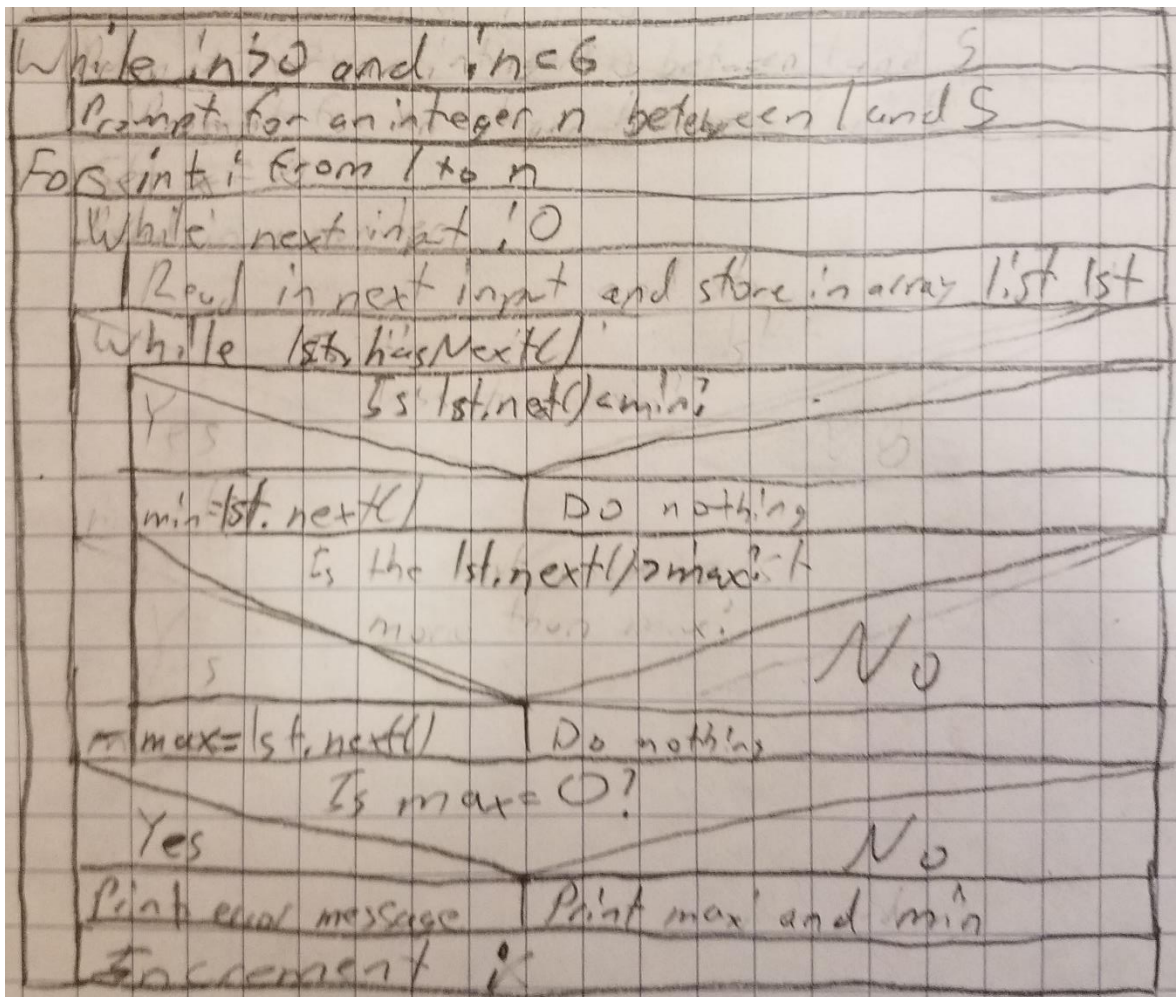 While in>0 and in<6
Prompt for an integer n between 1 and 5
For int i from 1 to n
While next input ! 0
Read in next input and store in array list lst
While lst.hasNext()
Is lst.next()<min?
Yes
min=lst.next() Do nothing
Is the lst.next()>max?
more than max?
No
max=lst.next() Do nothing
Is max=0?
Yes No
Print error message Print max and min
Increment i